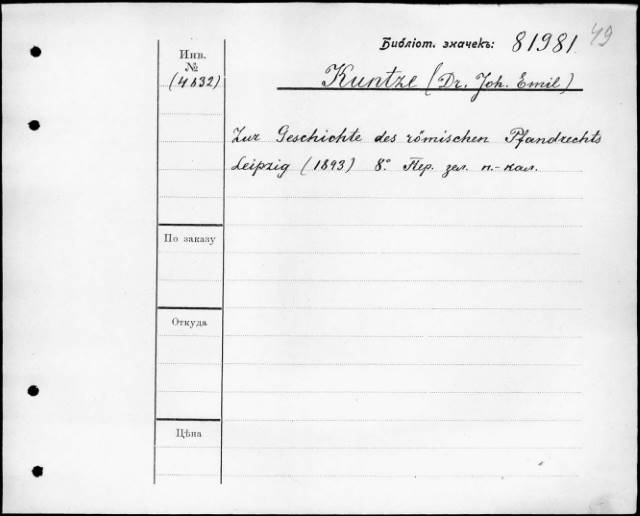 Библіот. значекъ: 81981 49
Инв.
№
(4632)
Kuntze (Dr. Joh. Emil)
Zur Geschichte des römischen Pfandrechts
Leipzig (1893) 8° Пер. зел. п.-кал.
По заказу
Откуда
Цѣна